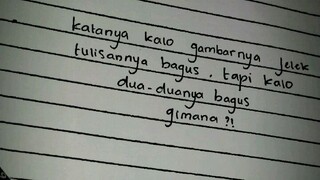 katanya kalo gambarnya jelek
tulisannya bagus. tapi kalo
dua-duanya bagus
gimana ?!